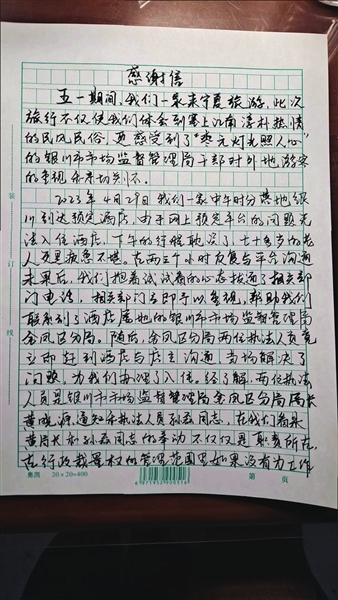 感谢信
五一期间,我们一家来宁夏旅游,此次
旅行不仅使我们体会到塞上江南淳朴热情
的民风民俗,更感受到了"枣元灯光照人心"
的银川市市场监督管理局干部对外地游客
的重视和关切关怀。
2023年4月29日我们一家中午时分落地银
川到达预定酒店,由于网上预定平台的问题无
法入住酒店,下午的行程耽误了,七十多岁的老
人更是疲惫不堪,在两三个小时反复与平台沟通
未果后,我们抱着试试看的心态拨通了相关部
门电话,相关部门立即予以重视,帮助我们
联系到了酒店属地的银川市市场监督管理局
金凤区分局,随后,金凤区分局两位执法人员竟
立即赶到酒店与店主沟通,当场解决了
问题,为我们办理了入住。经了解,两位执法
人员是银川市市场监督管理局金凤区分局局长
黄晓源通知执法人员孙磊同志,在我们看来
黄局长和孙磊同志的举动不仅仅是职责所在,
在行政裁量权的管理范围里如果没有为工作
装
订
线
奥茜 20×20=400
第 页